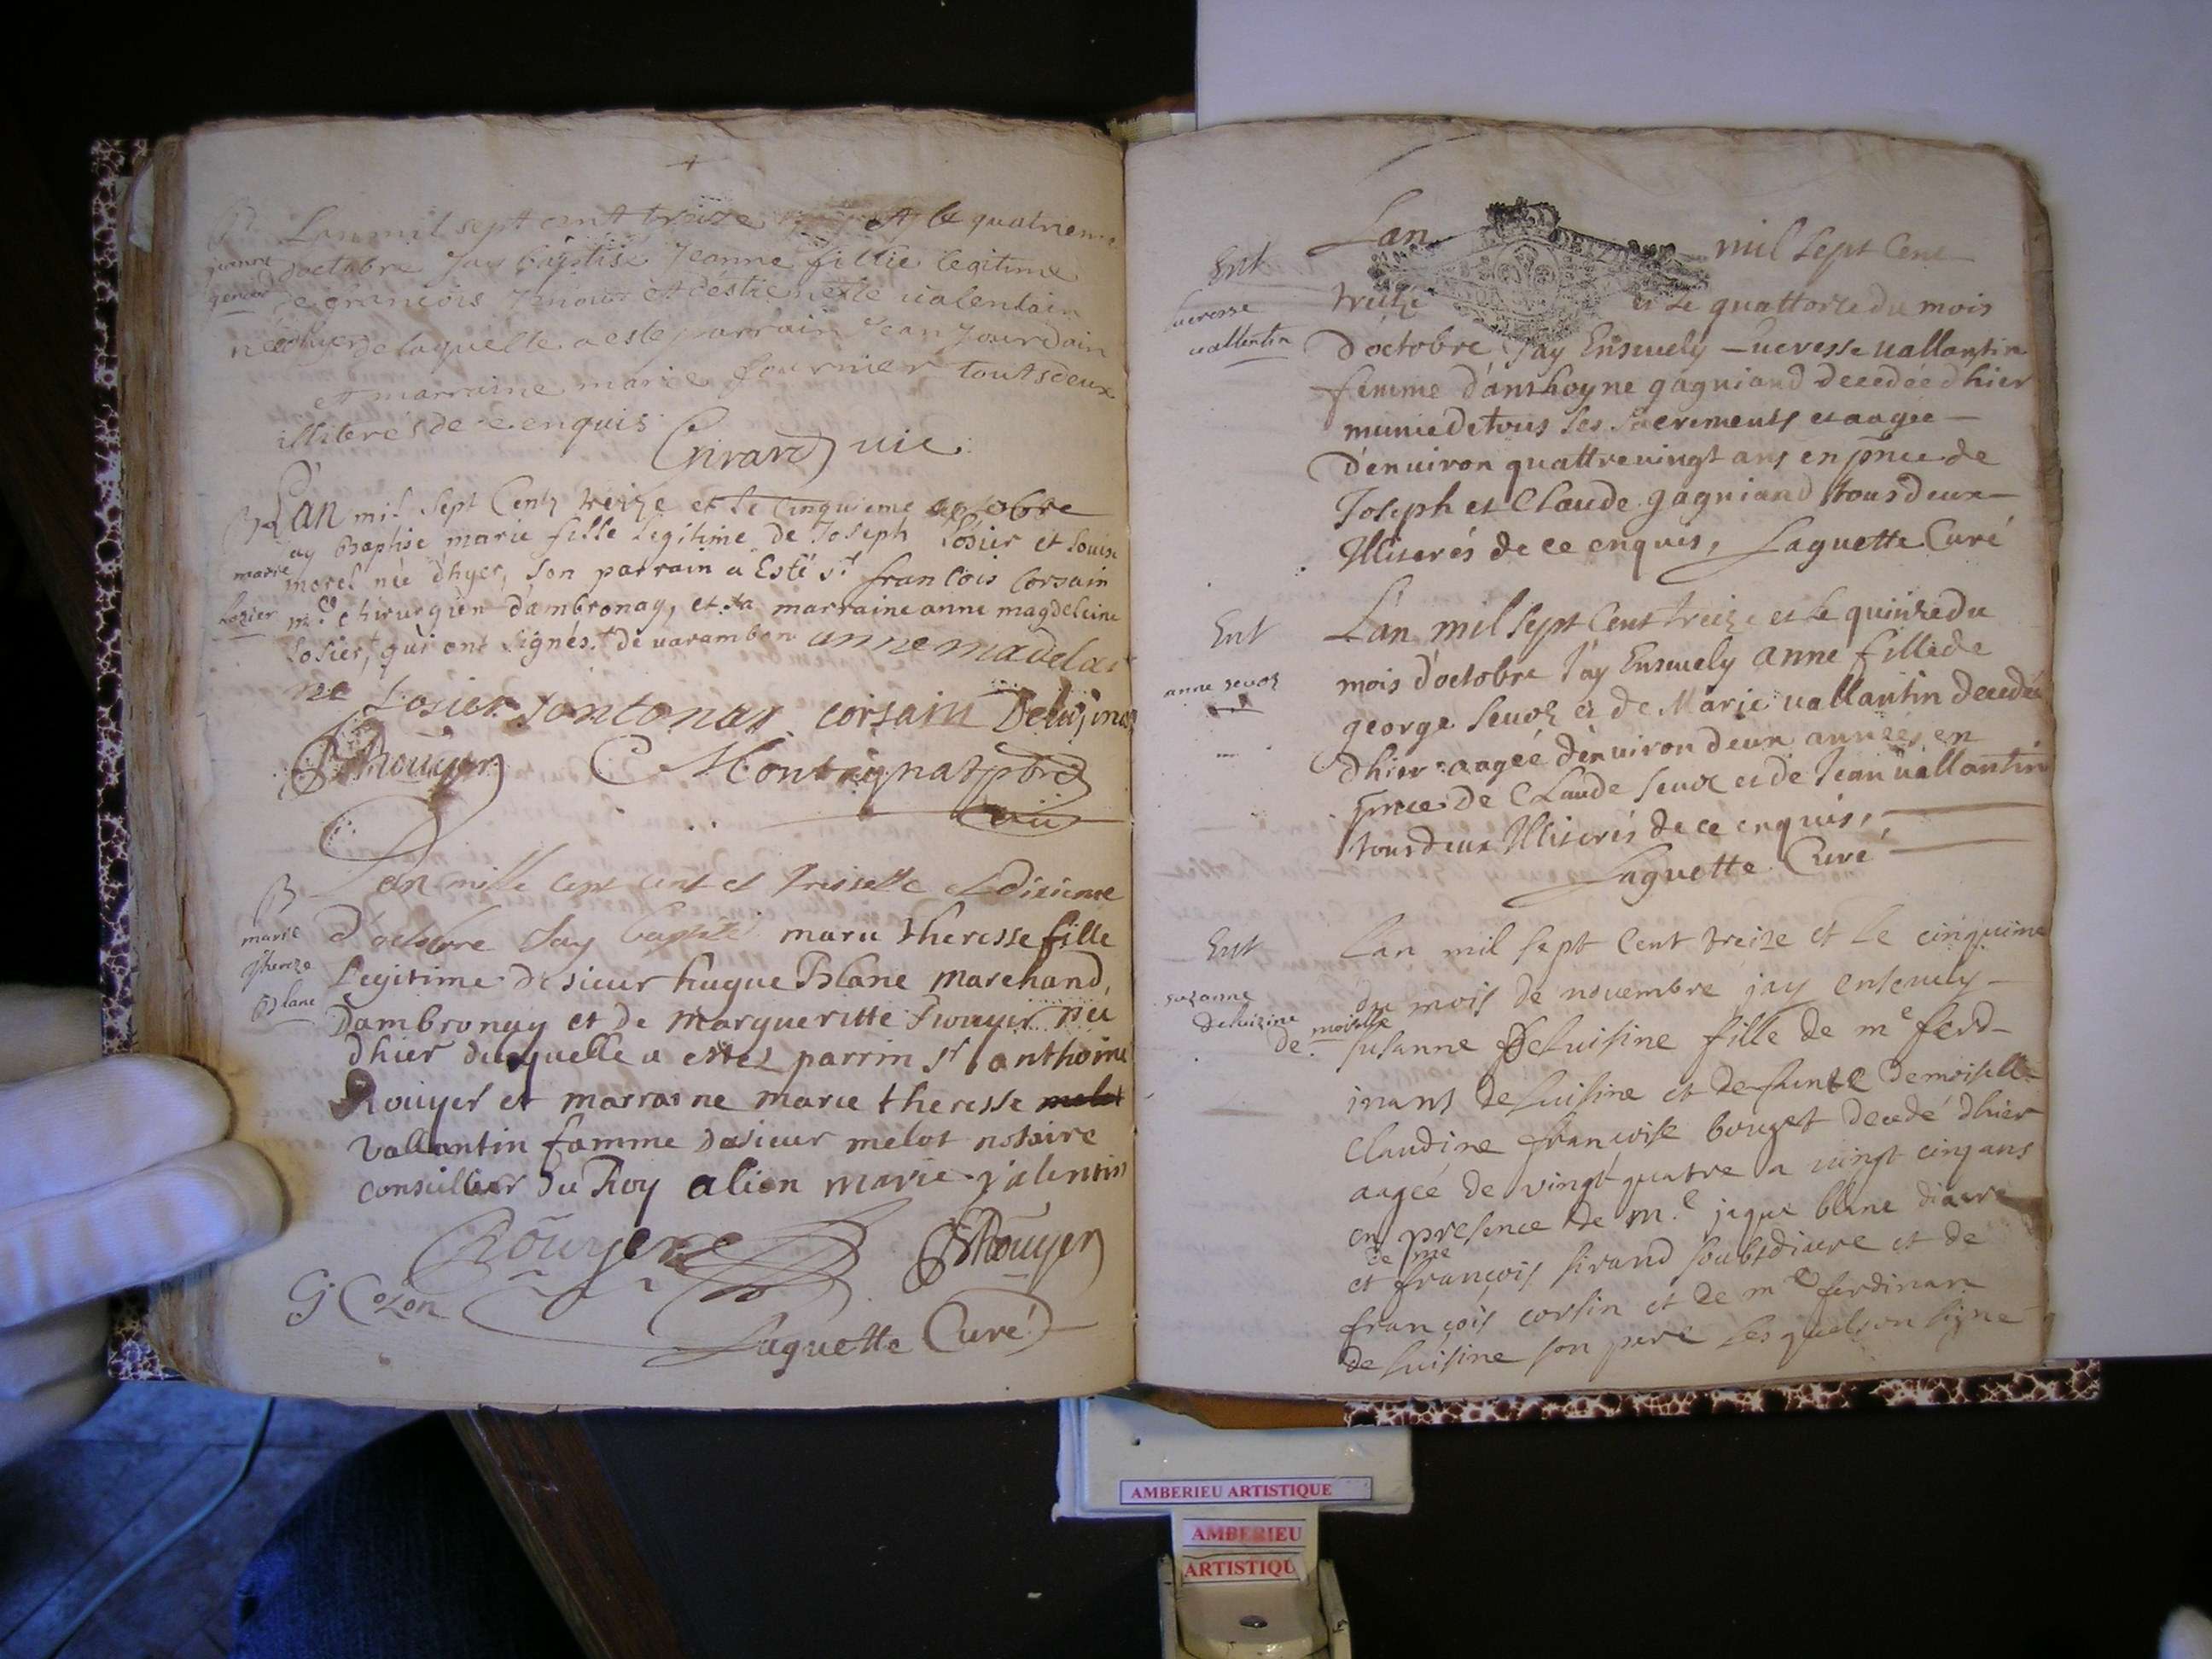 Lan mil sept cent treize et le quatrieme
doctobre Jay baptisé Jeanne fillie legitime
de francois et destienette ualentain
née hier de laquelle a este parrain Jean Jourdain
et marraine marie fournier touts deux
illiterés de ce enquis
Girard vic
jeanne
B
L'an mil sept Centz treize et le Cinquieme octobre
ay Baptisé marie fille legitime de Joseph Losier et Louise
morel née d'hyer, son parrain a Esté sr francois Corsain
me chirurgien d'ambronay, et sa marraine anne magdeleine
Losier, qui ont signés. de uarambon anne madelai
ne Losier Jontonas corsain Deluisina
BRouyer C Montagnat pbre
marie
Losier
B
Lan mille sept cent et tresse et disieme
d'octobre Jay baptisé marie theresse fille
Legitime de sieur hugue Blanc marchand
Dambronay et de margueritte Rouyer née
dhier de laquelle a estez parrin sr anthoine
Rouyer et marraine marie theresse melot
vallantin famme dasieur melot notaire
conseiller du Roy alion marie valentin
Rouyer BRouyer
G Cozon
Laguette Curé
marie
thereze
Blanc
Lan mil sept Cent
treize et le quattorze du mois
d'octobre J'ay Enseuely Lucresse uallantin
femme d'anthoyne gagniand decedée d'hier
munie de tous ses sacrements et aagée
d'enuiron quattreuingt ans en pnce de
Joseph et Claude gagniand tous deux
Illiterés de ce enquis, Laguette Curé
Ent
lucresse
uallentin
L'an mil sept Cent treize et le quinze du
mois d'octobre J'ay Enseuely anne fille de
george Seuoz et de Marie uallantin decedée
d'hier aagée d'enuiron deux années en
pnce de Claude Seuoz et de Jean uallantin
tous deux Illiterés de ce enquis,
Laguette Curé
Ent
anne seuoz
Lan mil sept Cent treize et le cinquieme
du mois de nouembre jay enseuely
de moiselle susanne deluisine fille de me ferd-
inant deluisine et defunte demoiselle
claudine françoise bouzet decedé d'hier
aagée de vingt quatre a vingt cinq ans
en presence de me jaque blanc diacre
et de me françois sirand soubsdiacre et de
françois corsin et de me ferdinan
deluisine son pere lesquels on signe
Ent
suzanne
deluizine
AMBERIEU ARTISTIQUE
AMBERIEU
ARTISTIQU